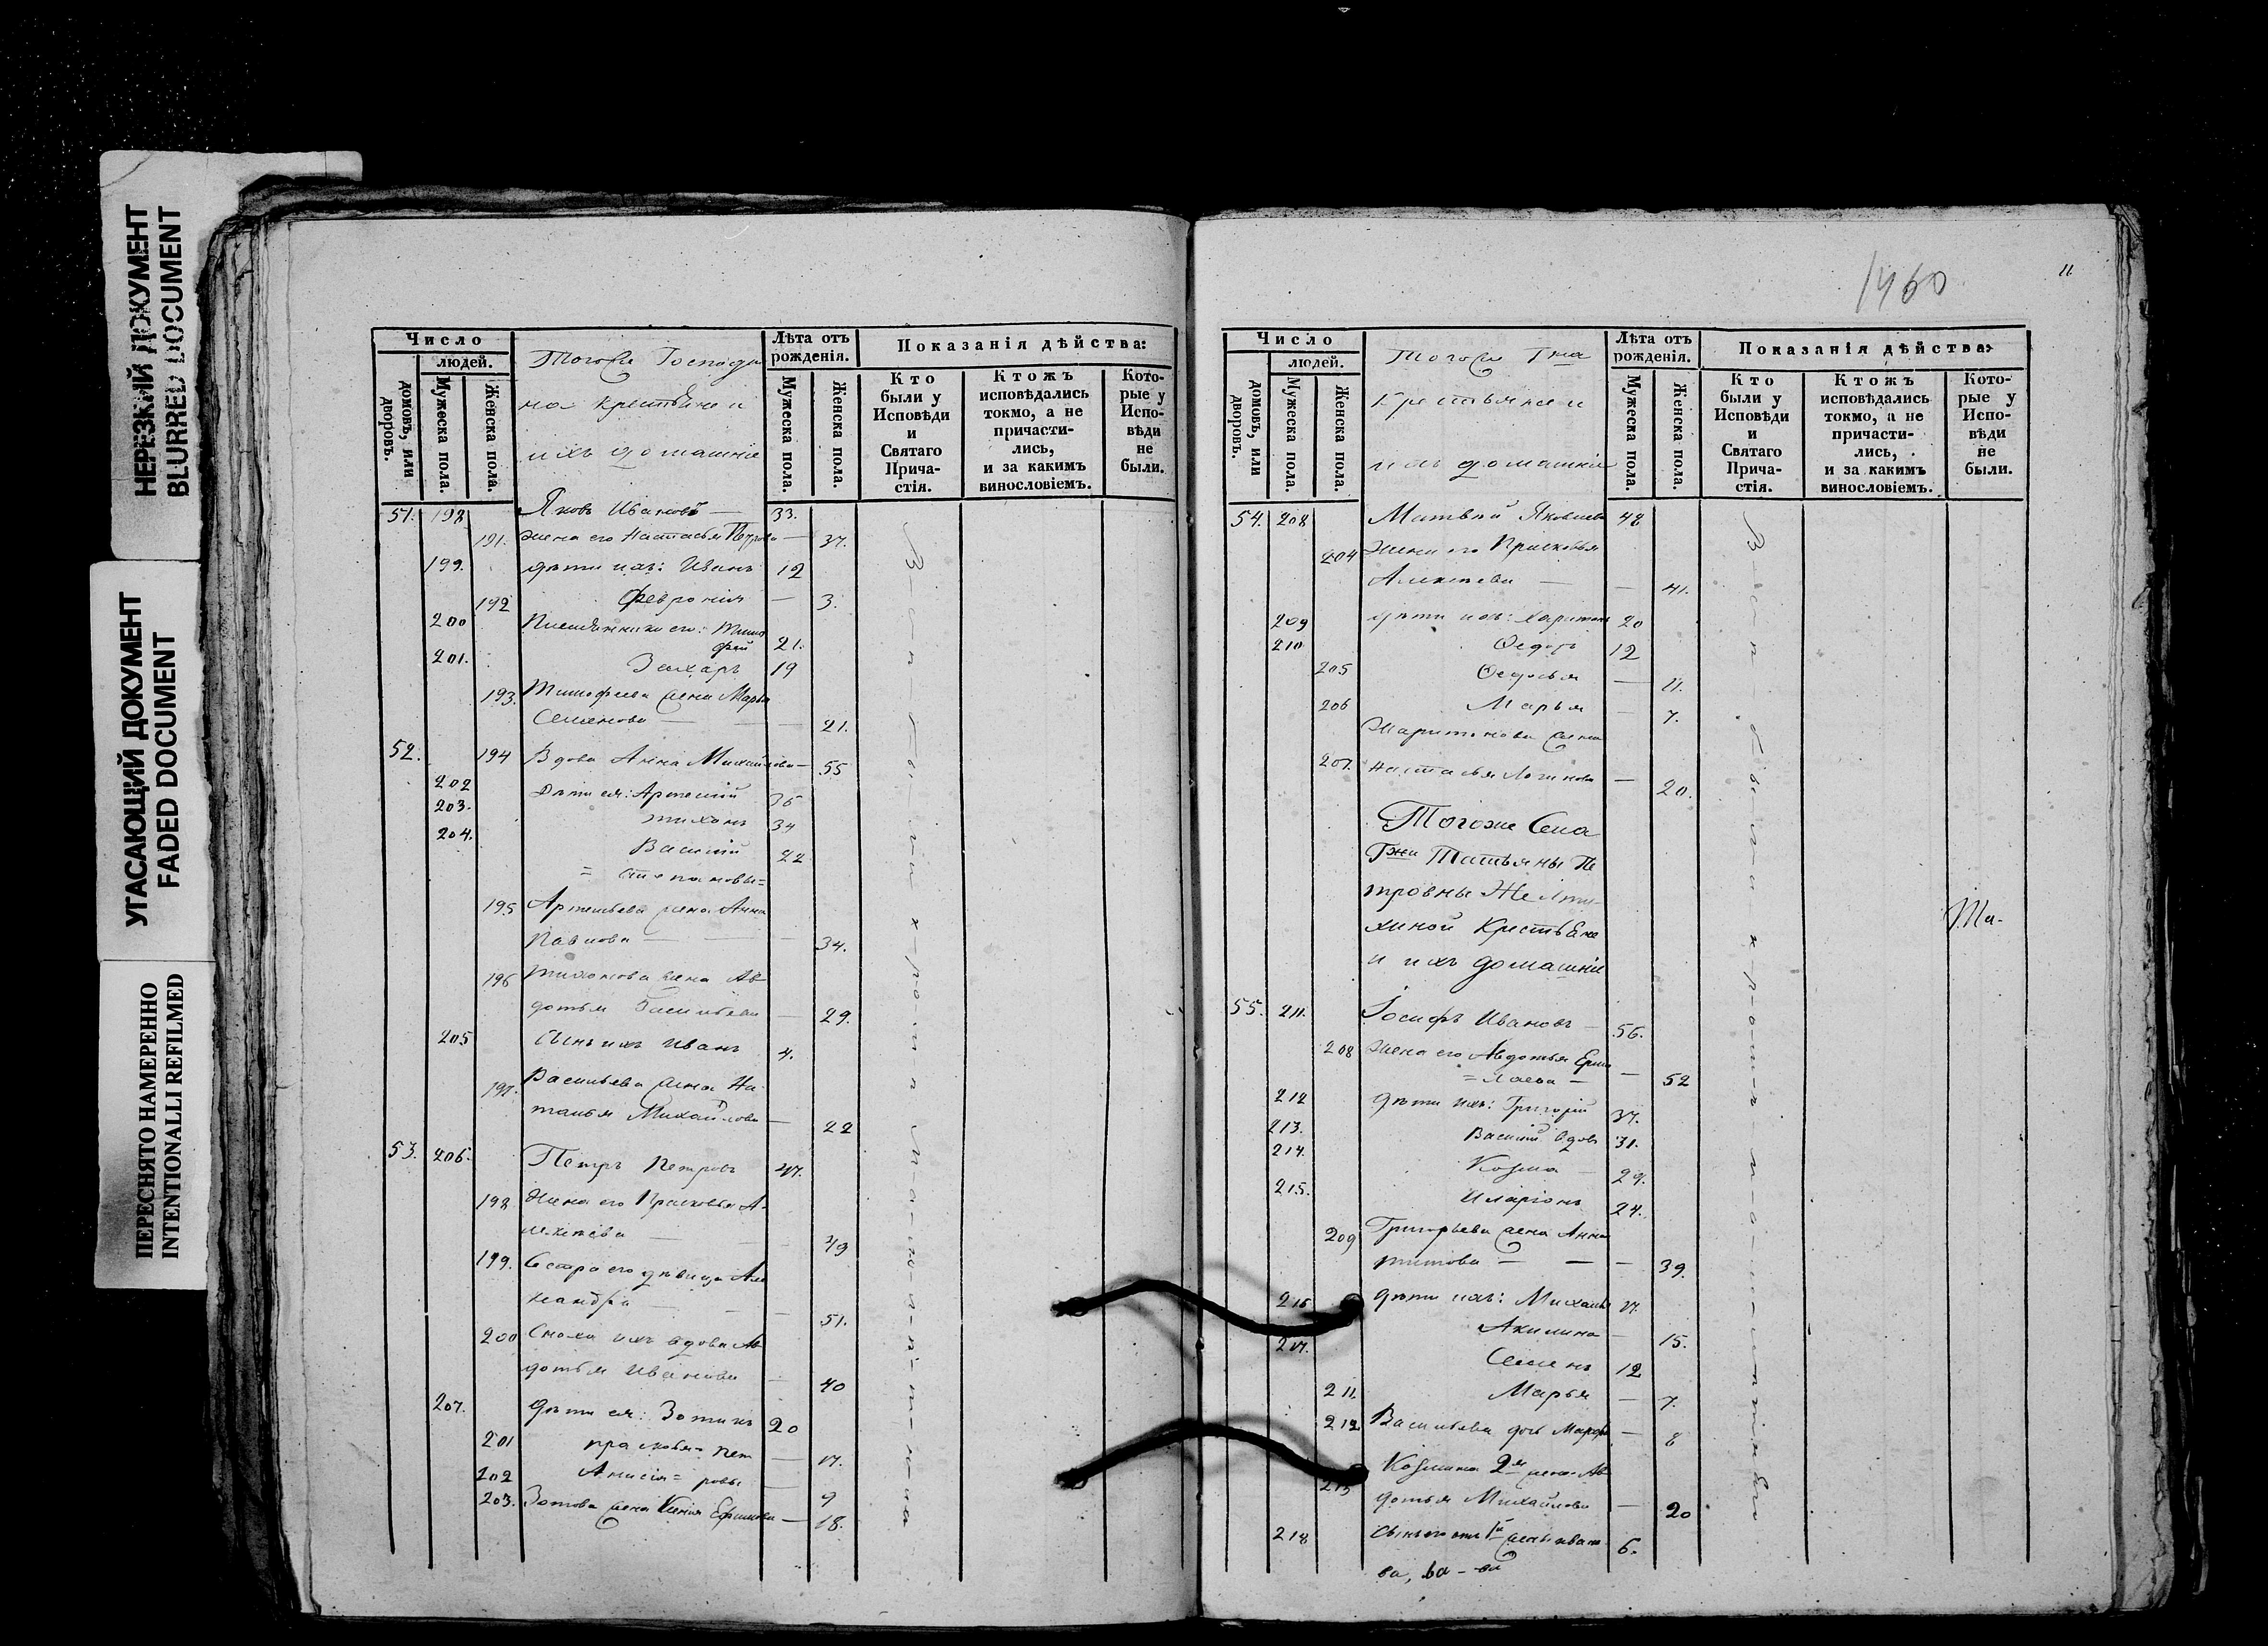 НЕРЕЗКИЙ ДОКУМЕНТ
BLURRED DOCUMENT
УГАСАЮЩИЙ ДОКУМЕНТ
FADED DOCUMENT
ПЕРЕСНЯТО НАМЕРЕННО
INTENTIONALLI REFILMED
Число
людей.
домовъ, или дворовъ.
Мужеска пола.
Женска пола.
Тогоже Господи
на крестьяне и
ихъ домашніе
Лѣта отъ рожденія.
Мужеска пола.
Женска пола.
Показанія дѣйства:
Кто были у Исповѣди и Святаго Прича-стія.
Ктожъ исповѣдались токмо, а не причасти-лись, и за какимъ винословіемъ.
Кото-рые у Испо-вѣди не были.
51. 198 Яковъ Ивановъ — 33.
191. жена его Настасья Петрова — 37.
199. дѣти ихъ: Иванъ 12
192 Февронія — 3.
200 Племянники его: Тимо
фей 21.
201. Захаръ 19
193. Тимофеева жена Марья
Семенова — 21.
52. 194 Вдова Анна Михайлова — 55
202 Дѣти ея: Артемій 36
203. Тихонъ 34
204. Василій 22
= Степановы =
195 Артемьева жена Анна
Павлова — 34.
196 Тихонова жена Ав
дотья Васильева — 29.
205 Сынъ ихъ Иванъ 4.
197. Васильева жена На
талья Михайлова — 22
53. 206. Петръ Петровъ 47.
198 Жена его Прасковья А-
лексѣева — 49
199. Сестра его дѣвица Але
ксандра — 51.
200 Сноха ихъ вдова Ав
дотья Иванова — 40
207. Дѣти ея: Зотикъ 20
201 Прасковья = Пет — 17.
202 Анисія = ровы — 9
203. Зотова жена Ксенія Ефимова — 18.
1460
11
Число
людей.
домовъ, или дворовъ.
Мужеска пола.
Женска пола.
Тогоже Гна
крестьяне и
ихъ домашніе
Лѣта отъ рожденія.
Мужеска пола.
Женска пола.
Показанія дѣйства:
Кто были у Исповѣди и Святаго Прича-стія.
Ктожъ исповѣдались токмо, а не причасти-лись, и за какимъ винословіемъ.
Кото-рые у Испо-вѣди не были.
54. 208 Матвѣй Яковлевъ 48
204 Жена его Прасковья
Алексѣева — 41.
209 дѣти ихъ: Харитонъ 20
210 Ѳедоръ 12
205 Ѳедосья — 11.
206 Марья — 7.
Харитонова жена
207. Настасья Логинова — 20.
Тогоже Села
Гжи Татьяны Пе
тровны Желту-
хиной Крестьяне
и ихъ домашніе
55. 211. Іосифъ Ивановъ — 56.
208 Жена его Авдотья Ермо
= лаева — 52
212 дѣти ихъ: Григорій 37.
213. Василій вдовъ 31.
214. Козма — 29.
215. Иларіонъ 24.
209 Григорьева жена Анна
Титова — 39.
216 дѣти ихъ: Михаилъ 17.
Акилина — 15.
217. Семенъ 12
211 Марья — 7.
212 Васильева дочь Марфа — 8
213 Козмина 2я жена Ав
дотья Михайлова — 20
218 Сынъ его отъ 1й жены Иванъ 6.